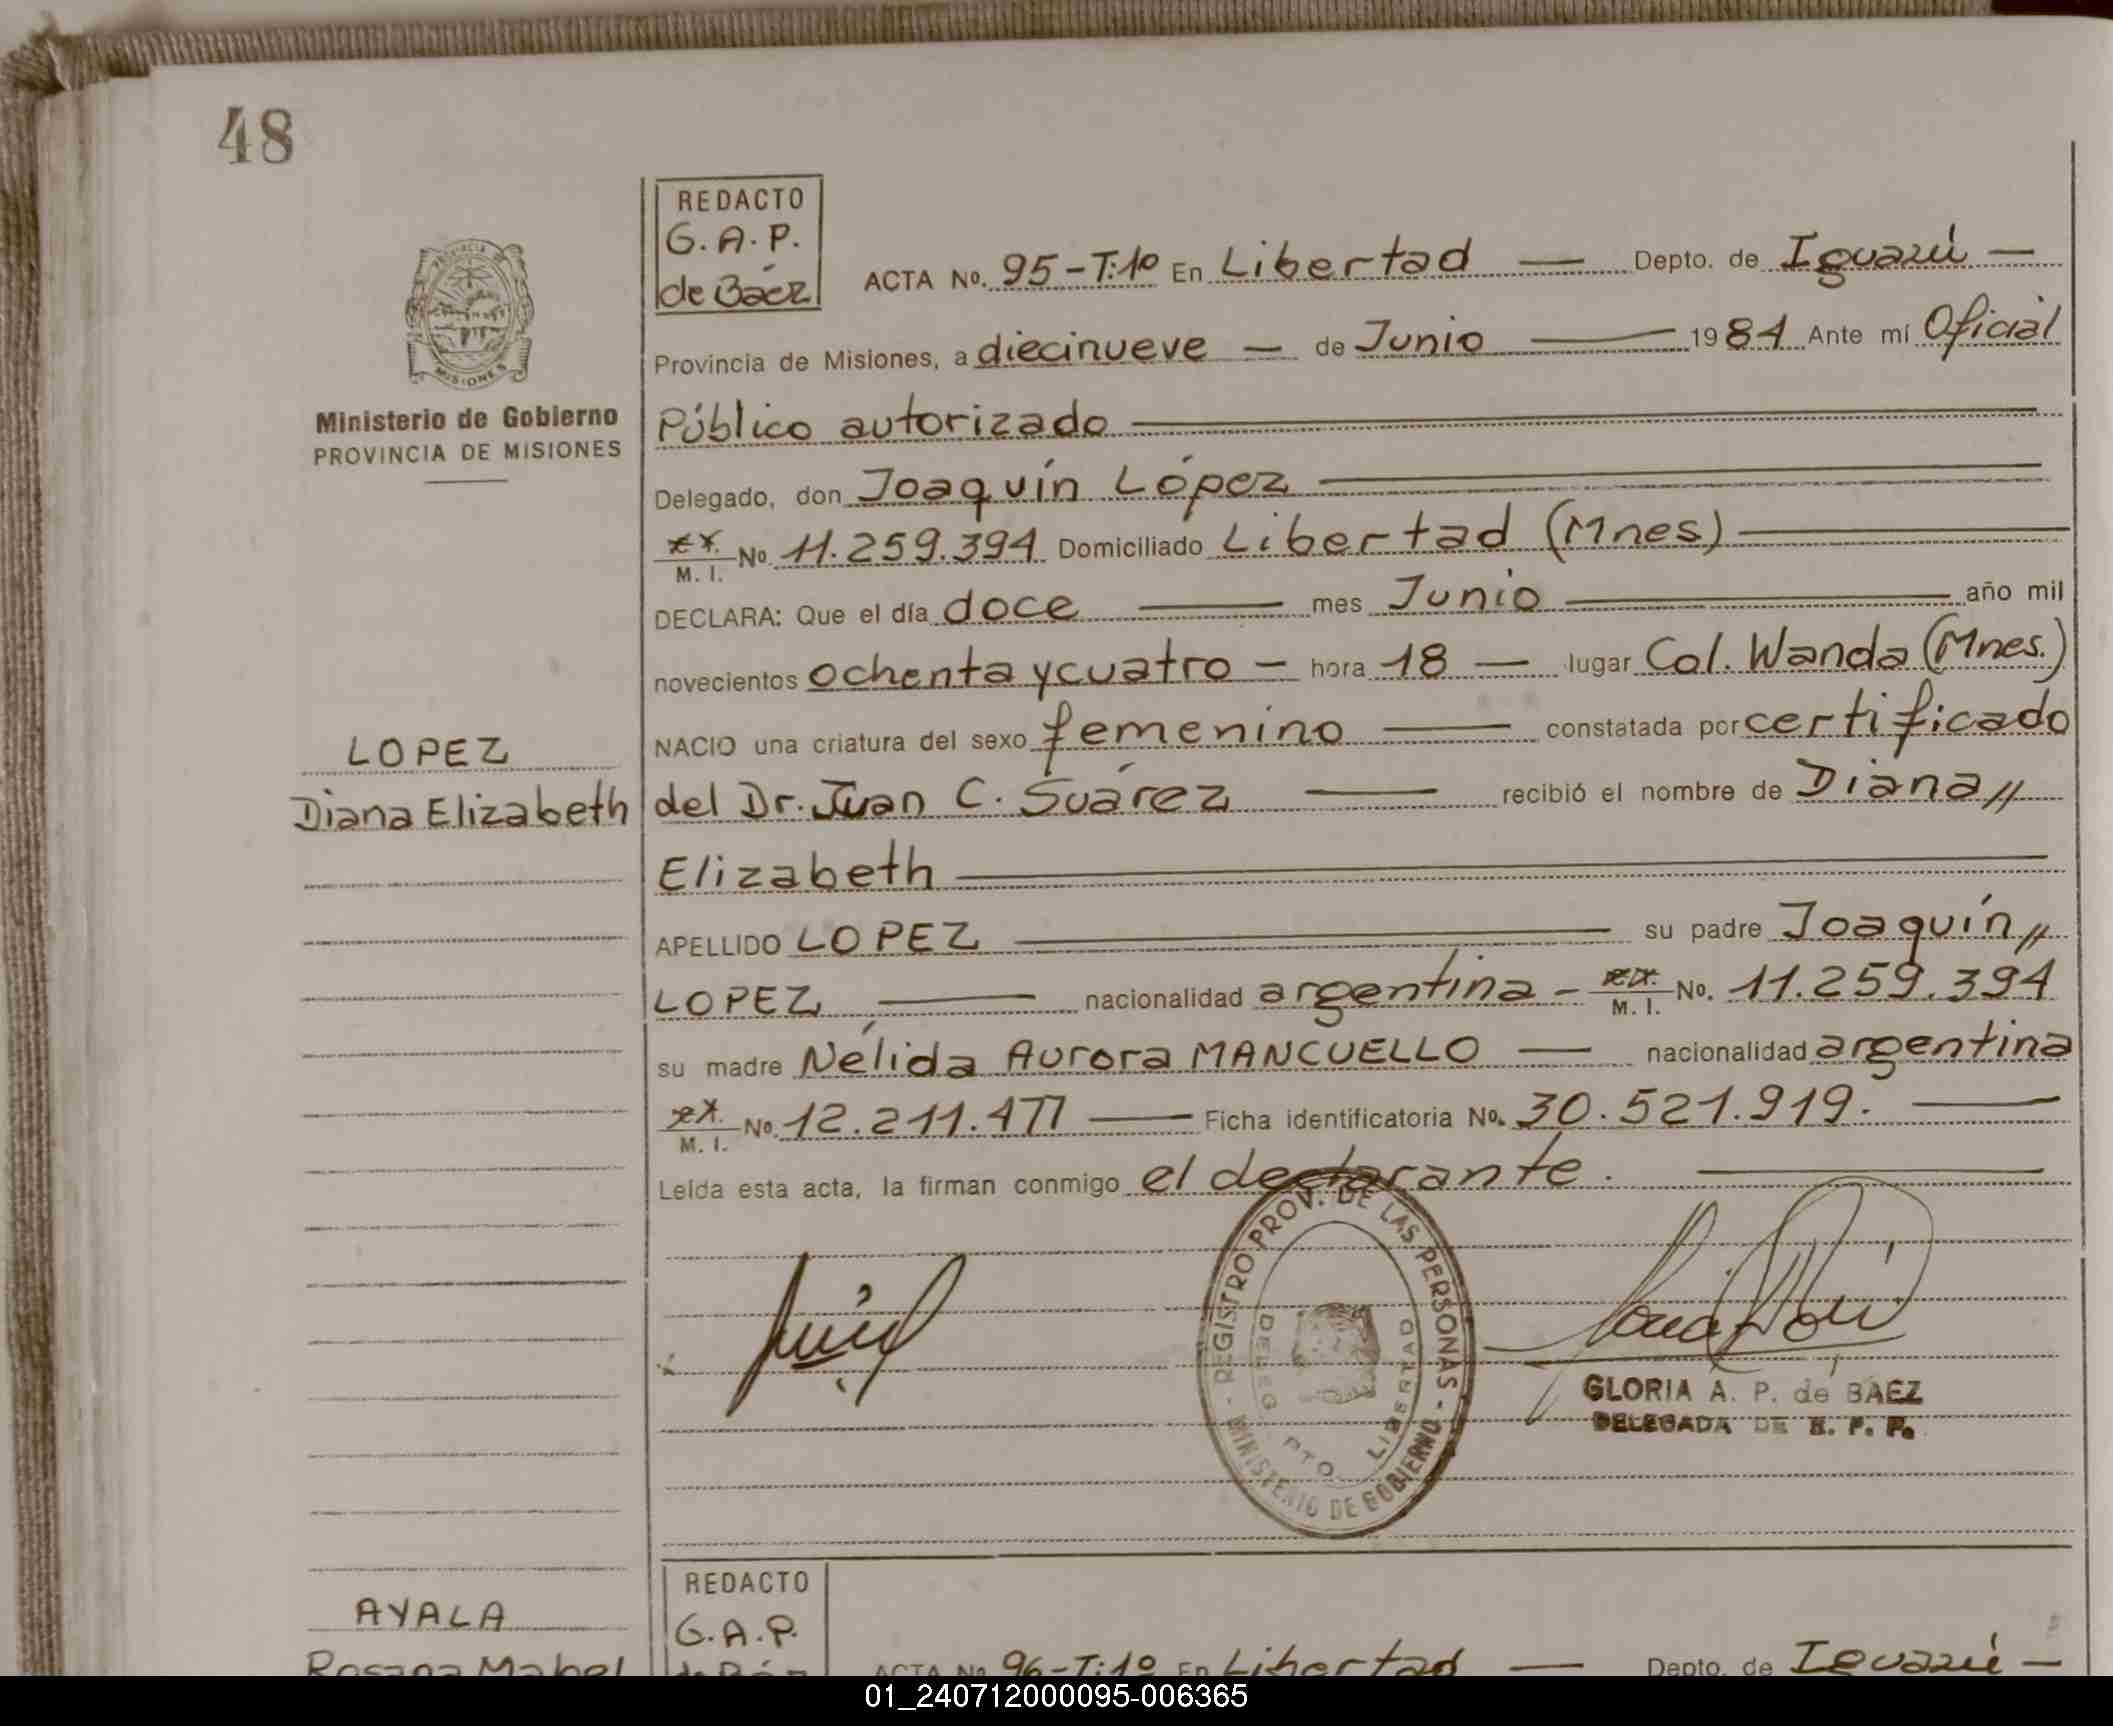 48
PROVINCIA
MISIONES
Ministerio de Gobierno
PROVINCIA DE MISIONES
LOPEZ
Diana Elizabeth
REDACTO
G. A. P.
de Báez
ACTA Nº. 95-T:1º En Libertad — Depto. de Iguazú —
Provincia de Misiones, a diecinueve — de Junio — 1984 Ante mí Oficial
Público autorizado —
Delegado, don Joaquín López —
M. I. Nº 11.259.394 Domiciliado Libertad (Mnes) —
DECLARA: Que el día doce — mes Junio — año mil
novecientos ochenta y cuatro — hora 18 — lugar Col. Wanda (Mnes.)
NACIO una criatura del sexo femenino — constatada por certificado
del Dr. Juan C. Suárez — recibió el nombre de Diana //
Elizabeth —
APELLIDO LOPEZ — su padre Joaquín //
LOPEZ — nacionalidad argentina — M. I. Nº. 11.259.394
su madre Nélida Aurora MANCUELLO — nacionalidad argentina
M. I. Nº 12.211.477 — Ficha identificatoria Nº. 30.521.919. —
Leída esta acta, la firman conmigo el declarante. —
REGISTRO PROV. DE LAS PERSONAS - MINISTERIO DE GOBIERNO -
DELEG PTO LIBERTAD
GLORIA A. P. de BAEZ
DELEGADA DE R. P. P.
AYALA
Rosana Mabel
REDACTO
G. A. P.
de Báez
ACTA Nº 96-T:1º En Libertad — Depto. de Iguazú —
01_240712000095-006365